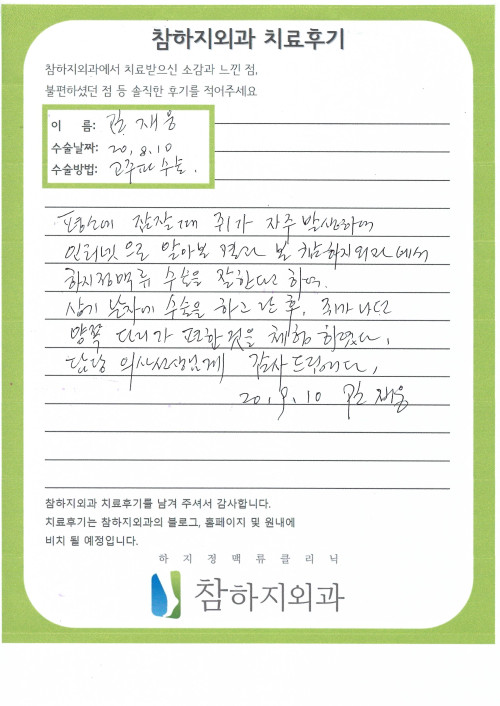 참하지외과 치료후기
참하지외과에서 치료받으신 소감과 느낀 점,
불편하셨던 점 등 솔직한 후기를 적어주세요
이 름: 김 재웅
수술날짜: 20, 8, 10
수술방법: 고주파 수술.
평소에 잠잘때 쥐가 자주 발생하여
인터넷으로 알아본 결과 본 참하지외과에서
하지정맥류 수술을 잘한다고 하여.
상기 날자에 수술을 하고 난 후, 쥐가 나던
양쪽 다리가 편한것을 체험 하였다,
담당 의사선생님께 감사드립니다,
20, 9, 10 김 재웅
참하지외과 치료후기를 남겨 주셔서 감사합니다.
치료후기는 참하지외과의 블로그, 홈페이지 및 원내에
비치 될 예정입니다.
하지정맥류클리닉
참하지외과